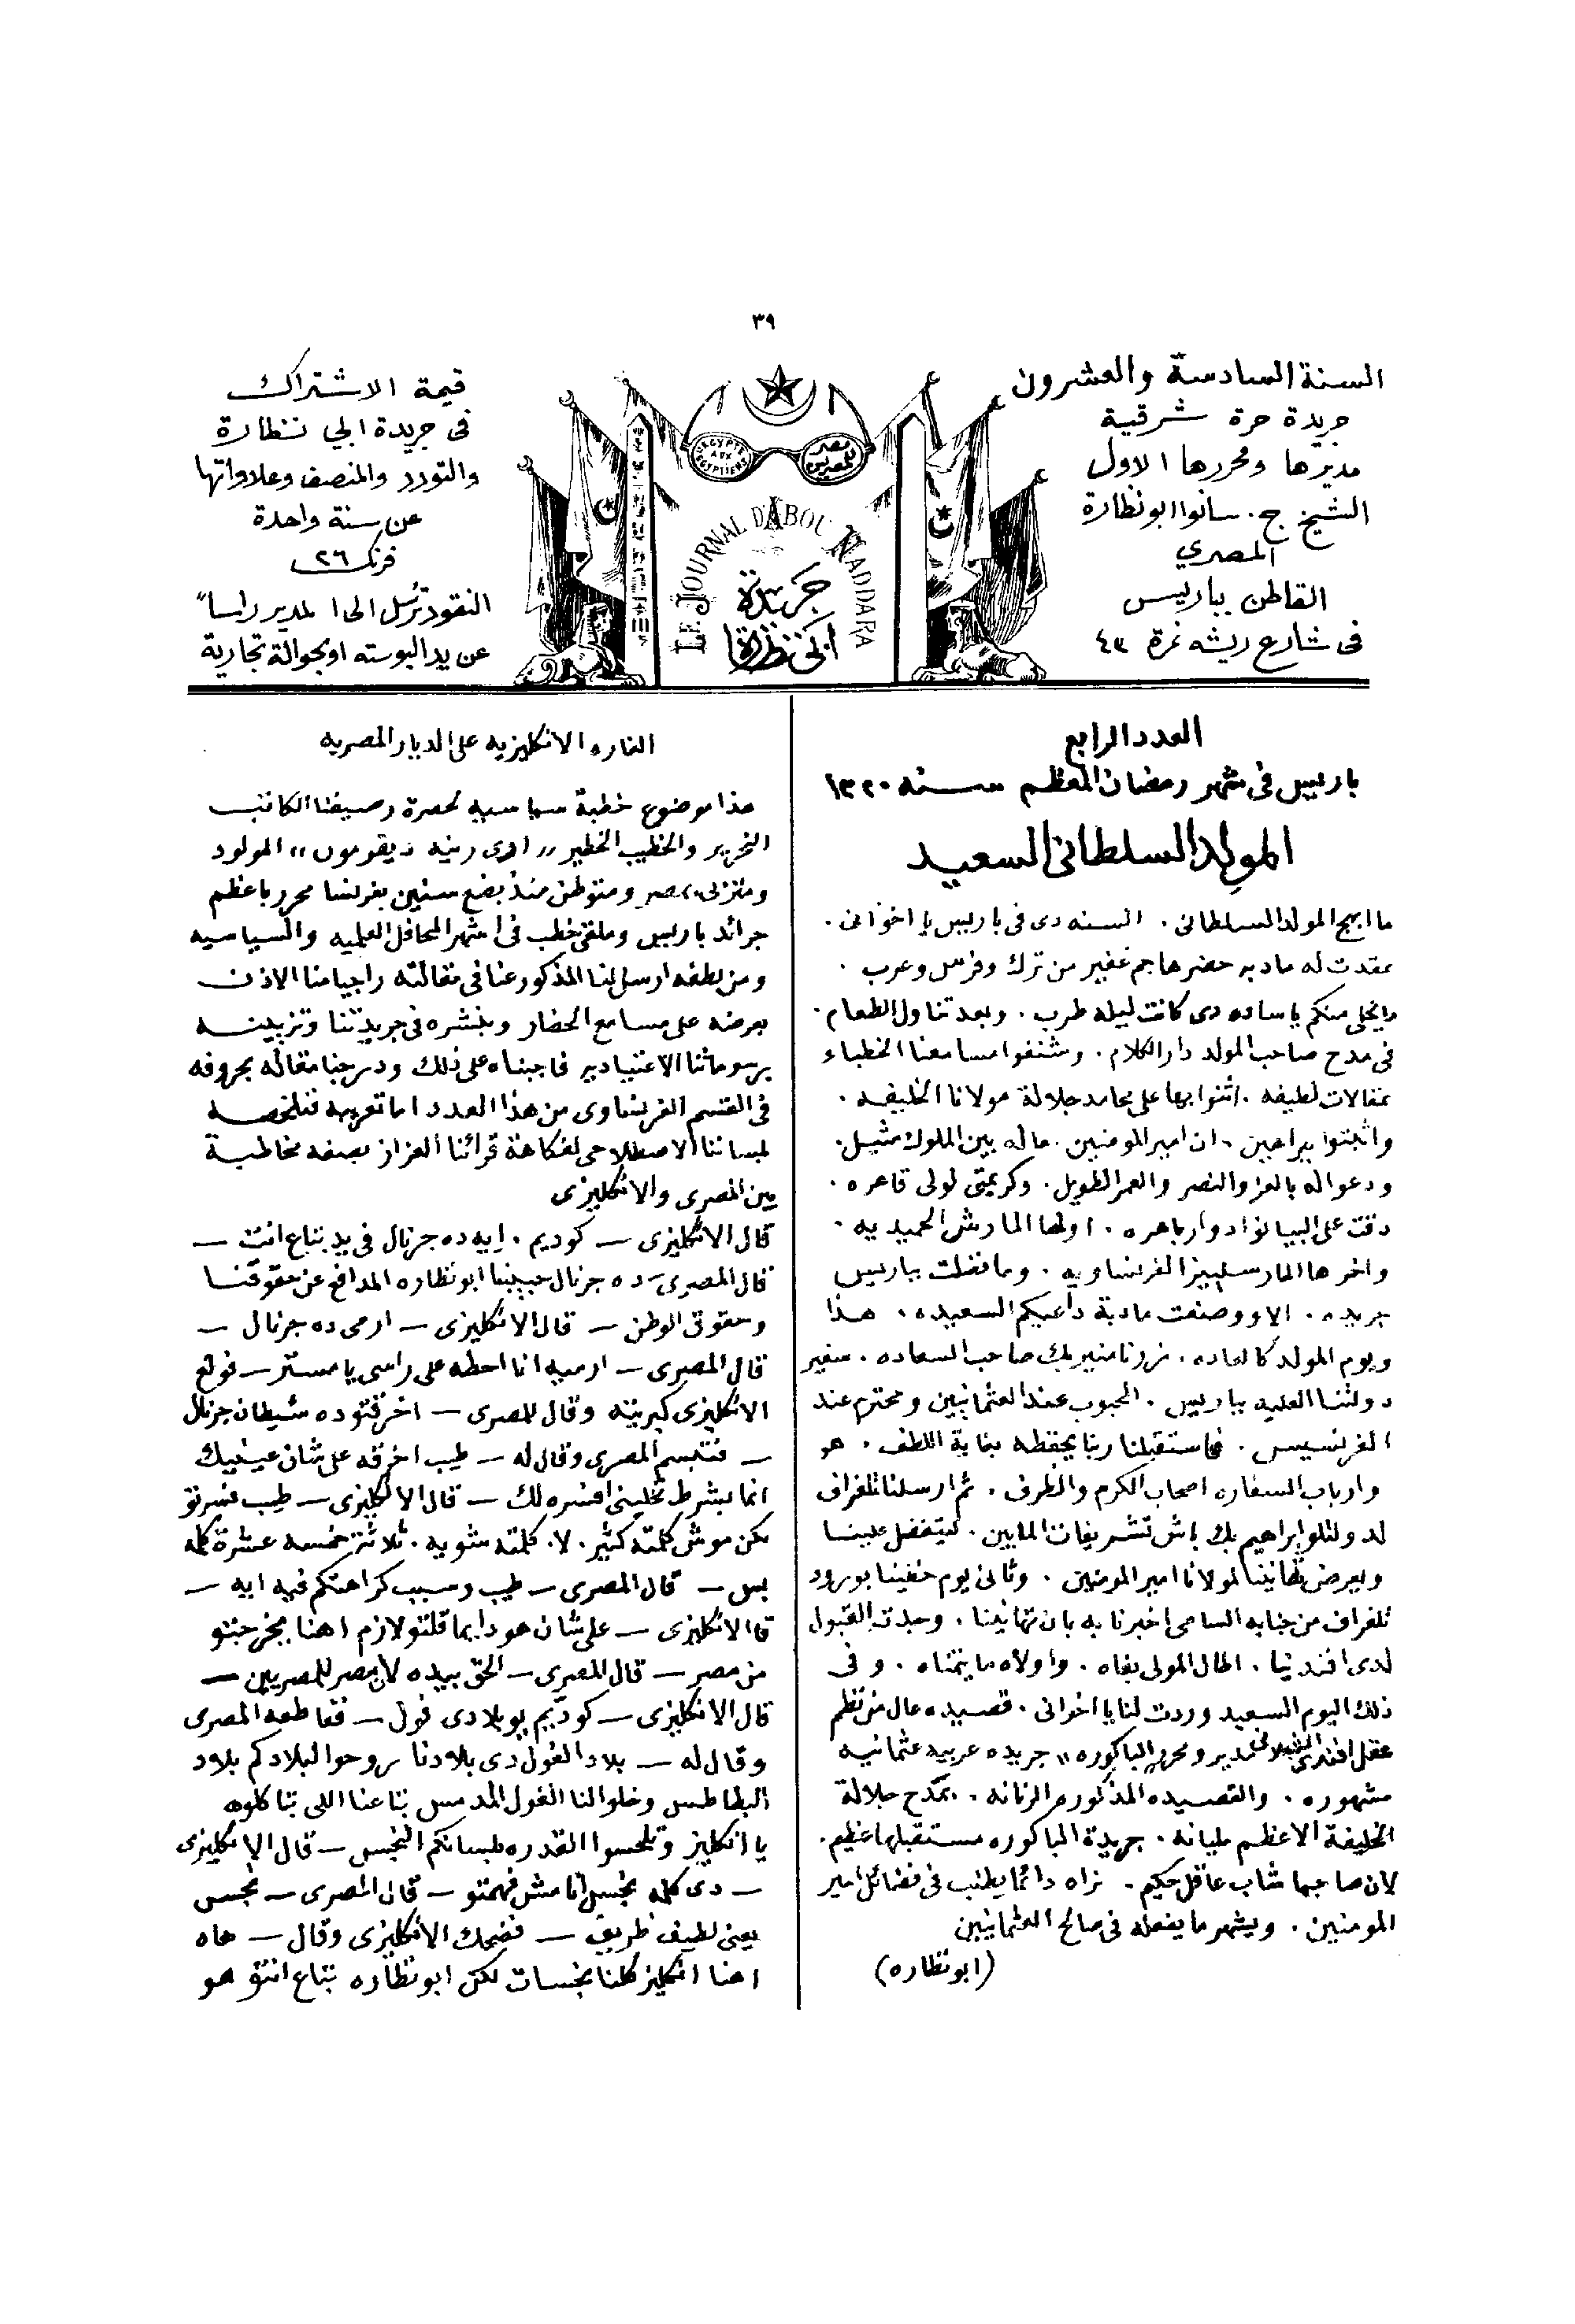 ٣٩
السنة السادسة والعشرون
جريدة حرة شرقية
مديرها ومحررها الاول
الشيخ ج. سانوا ابو نظارة
المصري
القاطن بباريس
فى شارع ريشه نمرة ٤٣
L'EGYPTE AUX EGYPTIENS
مصر للمصريين
LE JOURNAL D'ABOU NADDARA
جريدة
ابى نظارة
قيمة الاشتراك
فى جريدة ابي نظارة
والتودد والمنصف وعلاواتها
عن سنة واحدة
فرنك ٢٦
النقود ترسل الى المدير راسا"
عن يد البوسته او بحوالة تجارية
العدد الرابع
باريس فى شهر رمضان المعظم سنه ١٣٢٠
المولد السلطانى السعيد
ما ابهج المولد السلطانى. السنه دى فى باريس يا اخوانى.
عقدت له مادبه حضرها جم غفير من ترك وفرس وعرب.
ما يخلى منكم يا ساده دى كانت ليله طرب. وبعد تناول الطعام.
فى مدح صاحب المولد دار الكلام. وشنفوا مسامعنا الخطباء
بمقالات لطيفه. اثنوا بها على محامد جلالة مولانا الخليفه.
واثبتوا ببراهين. ان امير المومنين. ماله بين الملوك مثيل.
ودعوا له بالعز والنصر والعمر الطويل. وكريمتى لولى قاهره.
دقت على البيانو ادوار باهره. اولها المارش الحميديه.
واخرها المارسلييز الفرنساويه. وما فضلت بباريس
جريده. الا ووصفت مادبة داعيكم السعيده. هذا
ويوم المولد كالعاده. زرنا منير بك صاحب السعاده. سفير
دولتنا العليه بباريس. المحبوب عند العثمانيين ومحترم عند
الفرنسيس. فاستقبلنا ربنا يحفظه بغاية اللطف. هو
وارباب السفاره اصحاب الكرم والظرف. ثم ارسلنا تلغراف
لدولتلو ابراهيم بك باش تشريفات المابين. ليتفضل علينا
ويعرض تهانينا لمولانا امير المومنين. وثانى يوم حظينا بورود
تلغراف من جنابه السامى اخبرنا به بان تهانينا. وجدت القبول
لدى افندينا. اطال المولى بقاه. واولاه ما يتمناه. وفى
ذلك اليوم السعيد وردت لنا يا اخوانى. قصيده عال من نظم
عقل افندى مدير ومحرر الباكوره" جريده عربيه عثمانيه
مشهوره. والقصيده المذكوره الرنانه. بمدح جلالة
الخليفة الاعظم مليانه. جريدة الباكوره مستقبلها عظيم.
لان صاحبها شاب عاقل حكيم. نراه دائما يطنب فى فضائل امير
المومنين. ويشهر ما يفعله فى صالح العثمانيين
(ابو نظاره)
الغاره الانكليزيه على الديار المصريه
هذا موضوع خطبة سياسيه لحضرة رصيفنا الكاتب
النحرير والخطيب الخطير المولود
بمصر ومتوطن منذ بضع سنين بفرنسا محرر باعظم
جرائد باريس وملقى خطب فى اشهر المحافل العلميه والسياسيه
ومن لطفه ارسل لنا المذكور عنا فى مقالته راجيا منا الاذن
بعرضه على مسامع الحضار وبنشره فى جريدتنا وتزيينه
برسوماتنا الاعتياديه فاجبناه على ذلك ودرجنا مقاله بحروفه
فى القسم الفرنساوى من هذا العدد اما تعريبه فنلخصه
بلساننا الاصطلاحى لفكاهة قرائنا العزاز بصفه مخاطبة
بين المصرى والانكليزى
قال الانكليزى — كوديم. ايه ده جرنال فى يد بتاع انت —
قال المصرى — ده جرنال حبيبنا ابو نظاره المدافع عن حقوقنا
وحقوق الوطن — قال الانكليزى — ارمى ده جرنال —
قال المصرى — ارميه انا احطه على راسى يا مستر — فولع
الانكليزى كبريته وقال للمصرى — اخرقتو ده شيطان جرنال
— فتبسم المصرى وقال له — طيب احرقه على شان عينيك
انما بشرط تخلينى افسره لك — قال الانكليزى — طيب فسرتو
لكن موش كلمته كتير. لا. كلمته شويه. ثلاثتر خمسه عشرة كلمه
بس — قال المصرى — طيب وسبب كراهتكم فيه ايه —
قال الانكليزى — على شان هو دايما قلتو لازم احنا يخرجتو
من مصر — قال المصرى — الحق بيده لان مصر للمصريين —
قال الانكليزى — كوديم يو بلادى فول — فقاطعه المصرى
وقال له — بلاد الفول دى بلادنا روحوا لبلادكم بلاد
البطاطس وخلوا لنا الفول المدمس بتاعنا اللى بتاكلوه
يا انكليز وتلحسوا القدره بلسانكم النجس — قال الانكليزى
— دى كلمه نجس انا مش فهمتو — قال المصرى — نجس
يعنى لطيف ظريف — فضحك الانكليزى وقال — هاه
احنا انكليز كلنا نجسات لكن ابو نظاره بتاع انتو هو